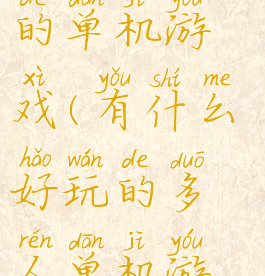 de dān jī yóu
的单机游
xì yǒu shí me
戏(有什么
hǎo wán de duō
好玩的多
rén dān jī yóu
人单机游